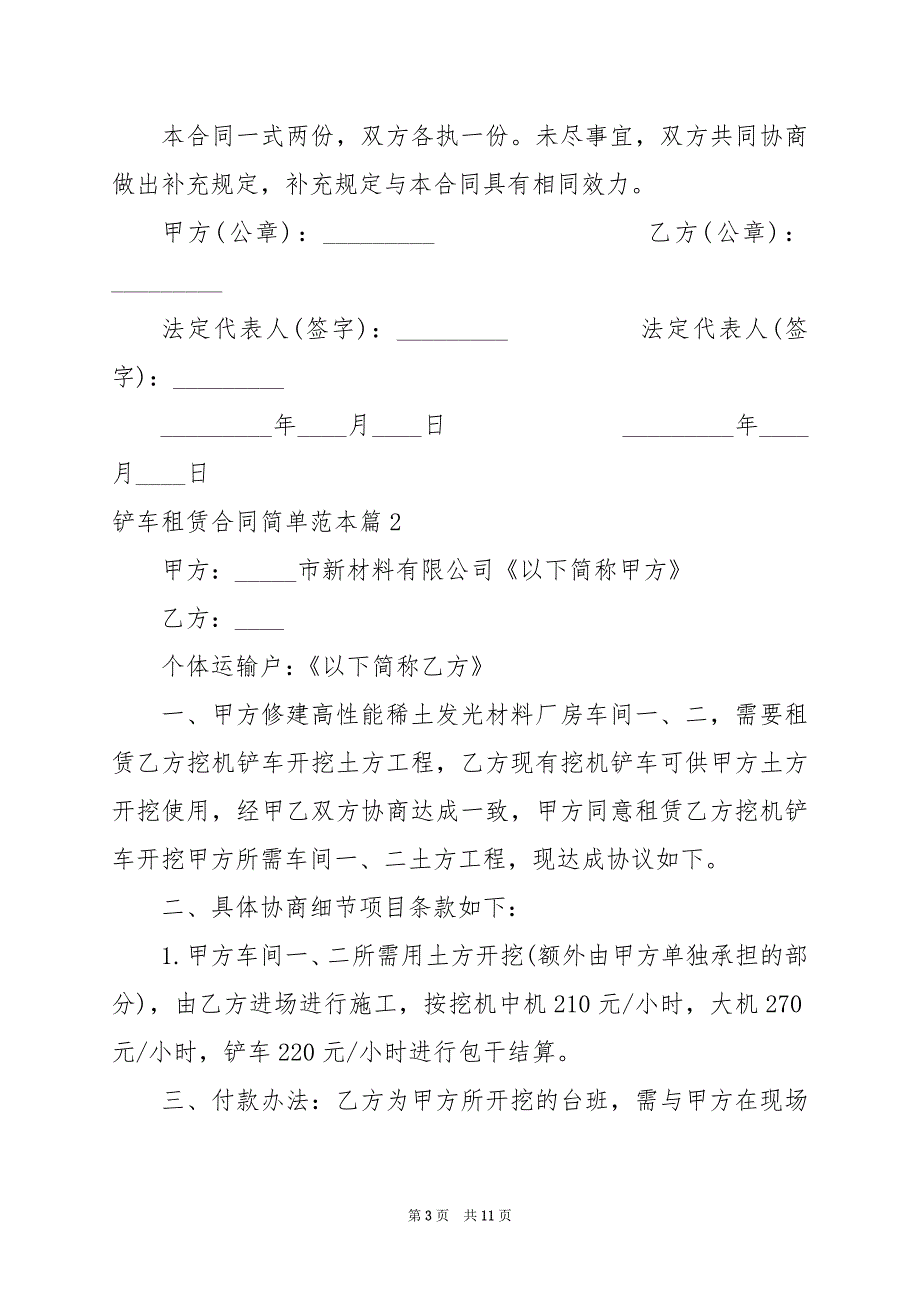 本合同一式两份，双方各执一份。未尽事宜，双方共同协商
做出补充规定，补充规定与本合同具有相同效力。
甲方(公章)：_________ 乙方(公章)：
_________
法定代表人(签字)：_________ 法定代表人(签
字)：_________
_________年____月____日 _________年____
月____日
铲车租赁合同简单范本篇2
甲方：_____市新材料有限公司《以下简称甲方》
乙方：____
个体运输户：《以下简称乙方》
一、甲方修建高性能稀土发光材料厂房车间一、二，需要租
赁乙方挖机铲车开挖土方工程，乙方现有挖机铲车可供甲方土方
开挖使用，经甲乙双方协商达成一致，甲方同意租赁乙方挖机铲
车开挖甲方所需车间一、二土方工程，现达成协议如下。
二、具体协商细节项目条款如下：
1.甲方车间一、二所需用土方开挖(额外由甲方单独承担的部
分)，由乙方进场进行施工，按挖机中机210元/小时，大机270
元/小时，铲车220元/小时进行包干结算。
三、付款办法：乙方为甲方所开挖的台班，需与甲方在现场
第3页 共11页